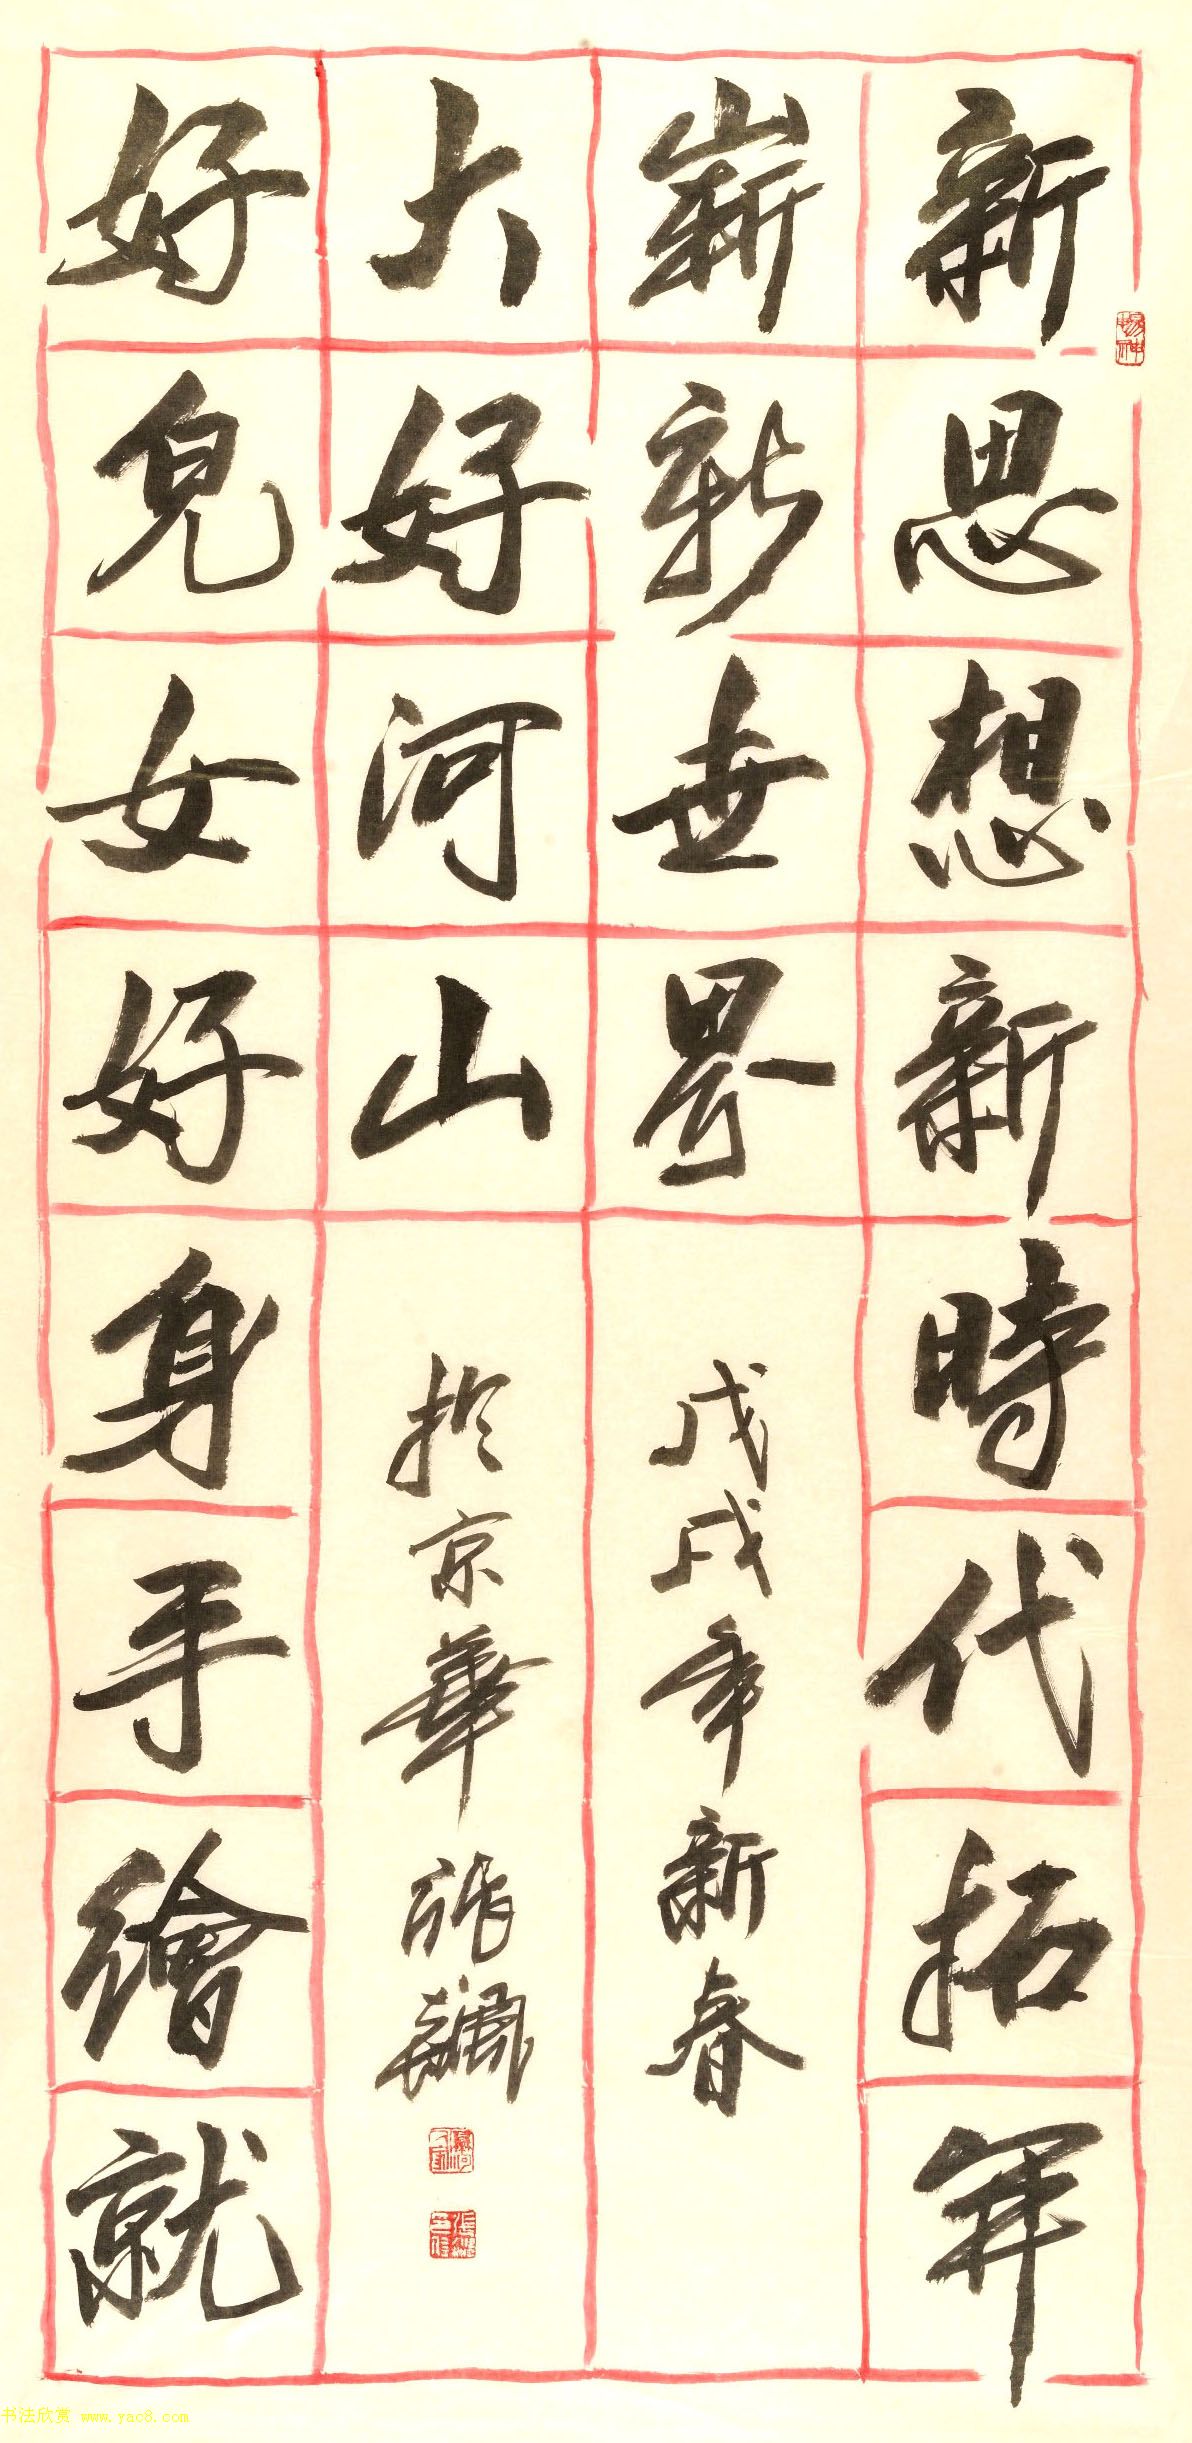 新思想新時代拓開
嶄新世界
好兒女好身手繪就
大好河山
戊戌年新春
於京華張飆
书法欣赏 www.yac8.com